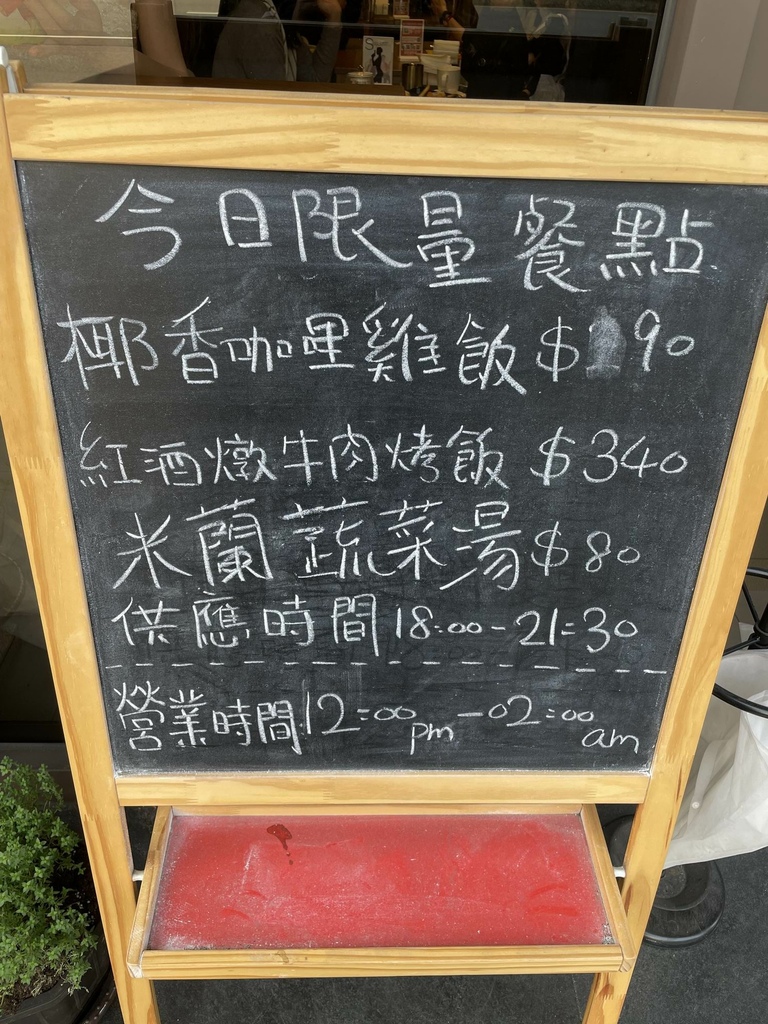 今日限量餐點
椰香咖哩雞飯 $ 90
紅酒燉牛肉烤飯 $340
米蘭蔬菜湯 $80
供應時間 18:00-21:30
營業時間 12:00pm-02:00am